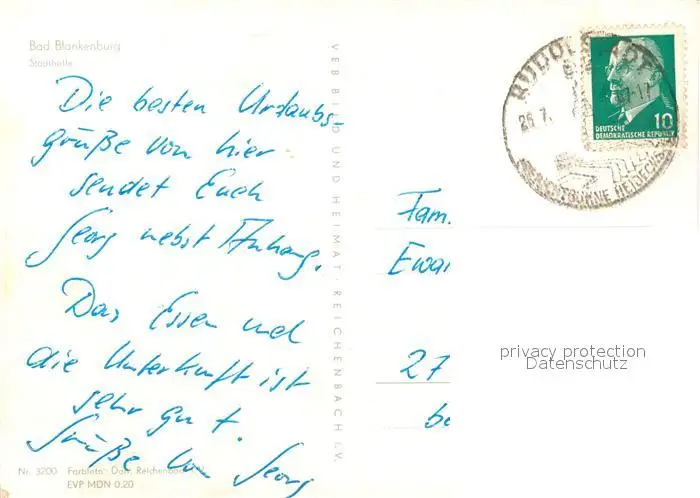 Bad Blankenburg
Stadthalle
Die besten Urlaubs-
grüße von hier
sendet Euch
Georg nebst Anhang.
Das Essen und
die Unterkunft ist
sehr gut.
Grüße von Georg
Nr. 3200 Farbfoto: Darr, Reichenbach
EVP MDN 0.20
VEB BILD UND HEIMAT REICHENBACH I.V.
RUDOLS
26.7. -17
HEIDECKS
10
DEUTSCHE
DEMOKRATISCHE REPUBLIK
Fam.
Ewa
27
be
privacy protection
Datenschutz